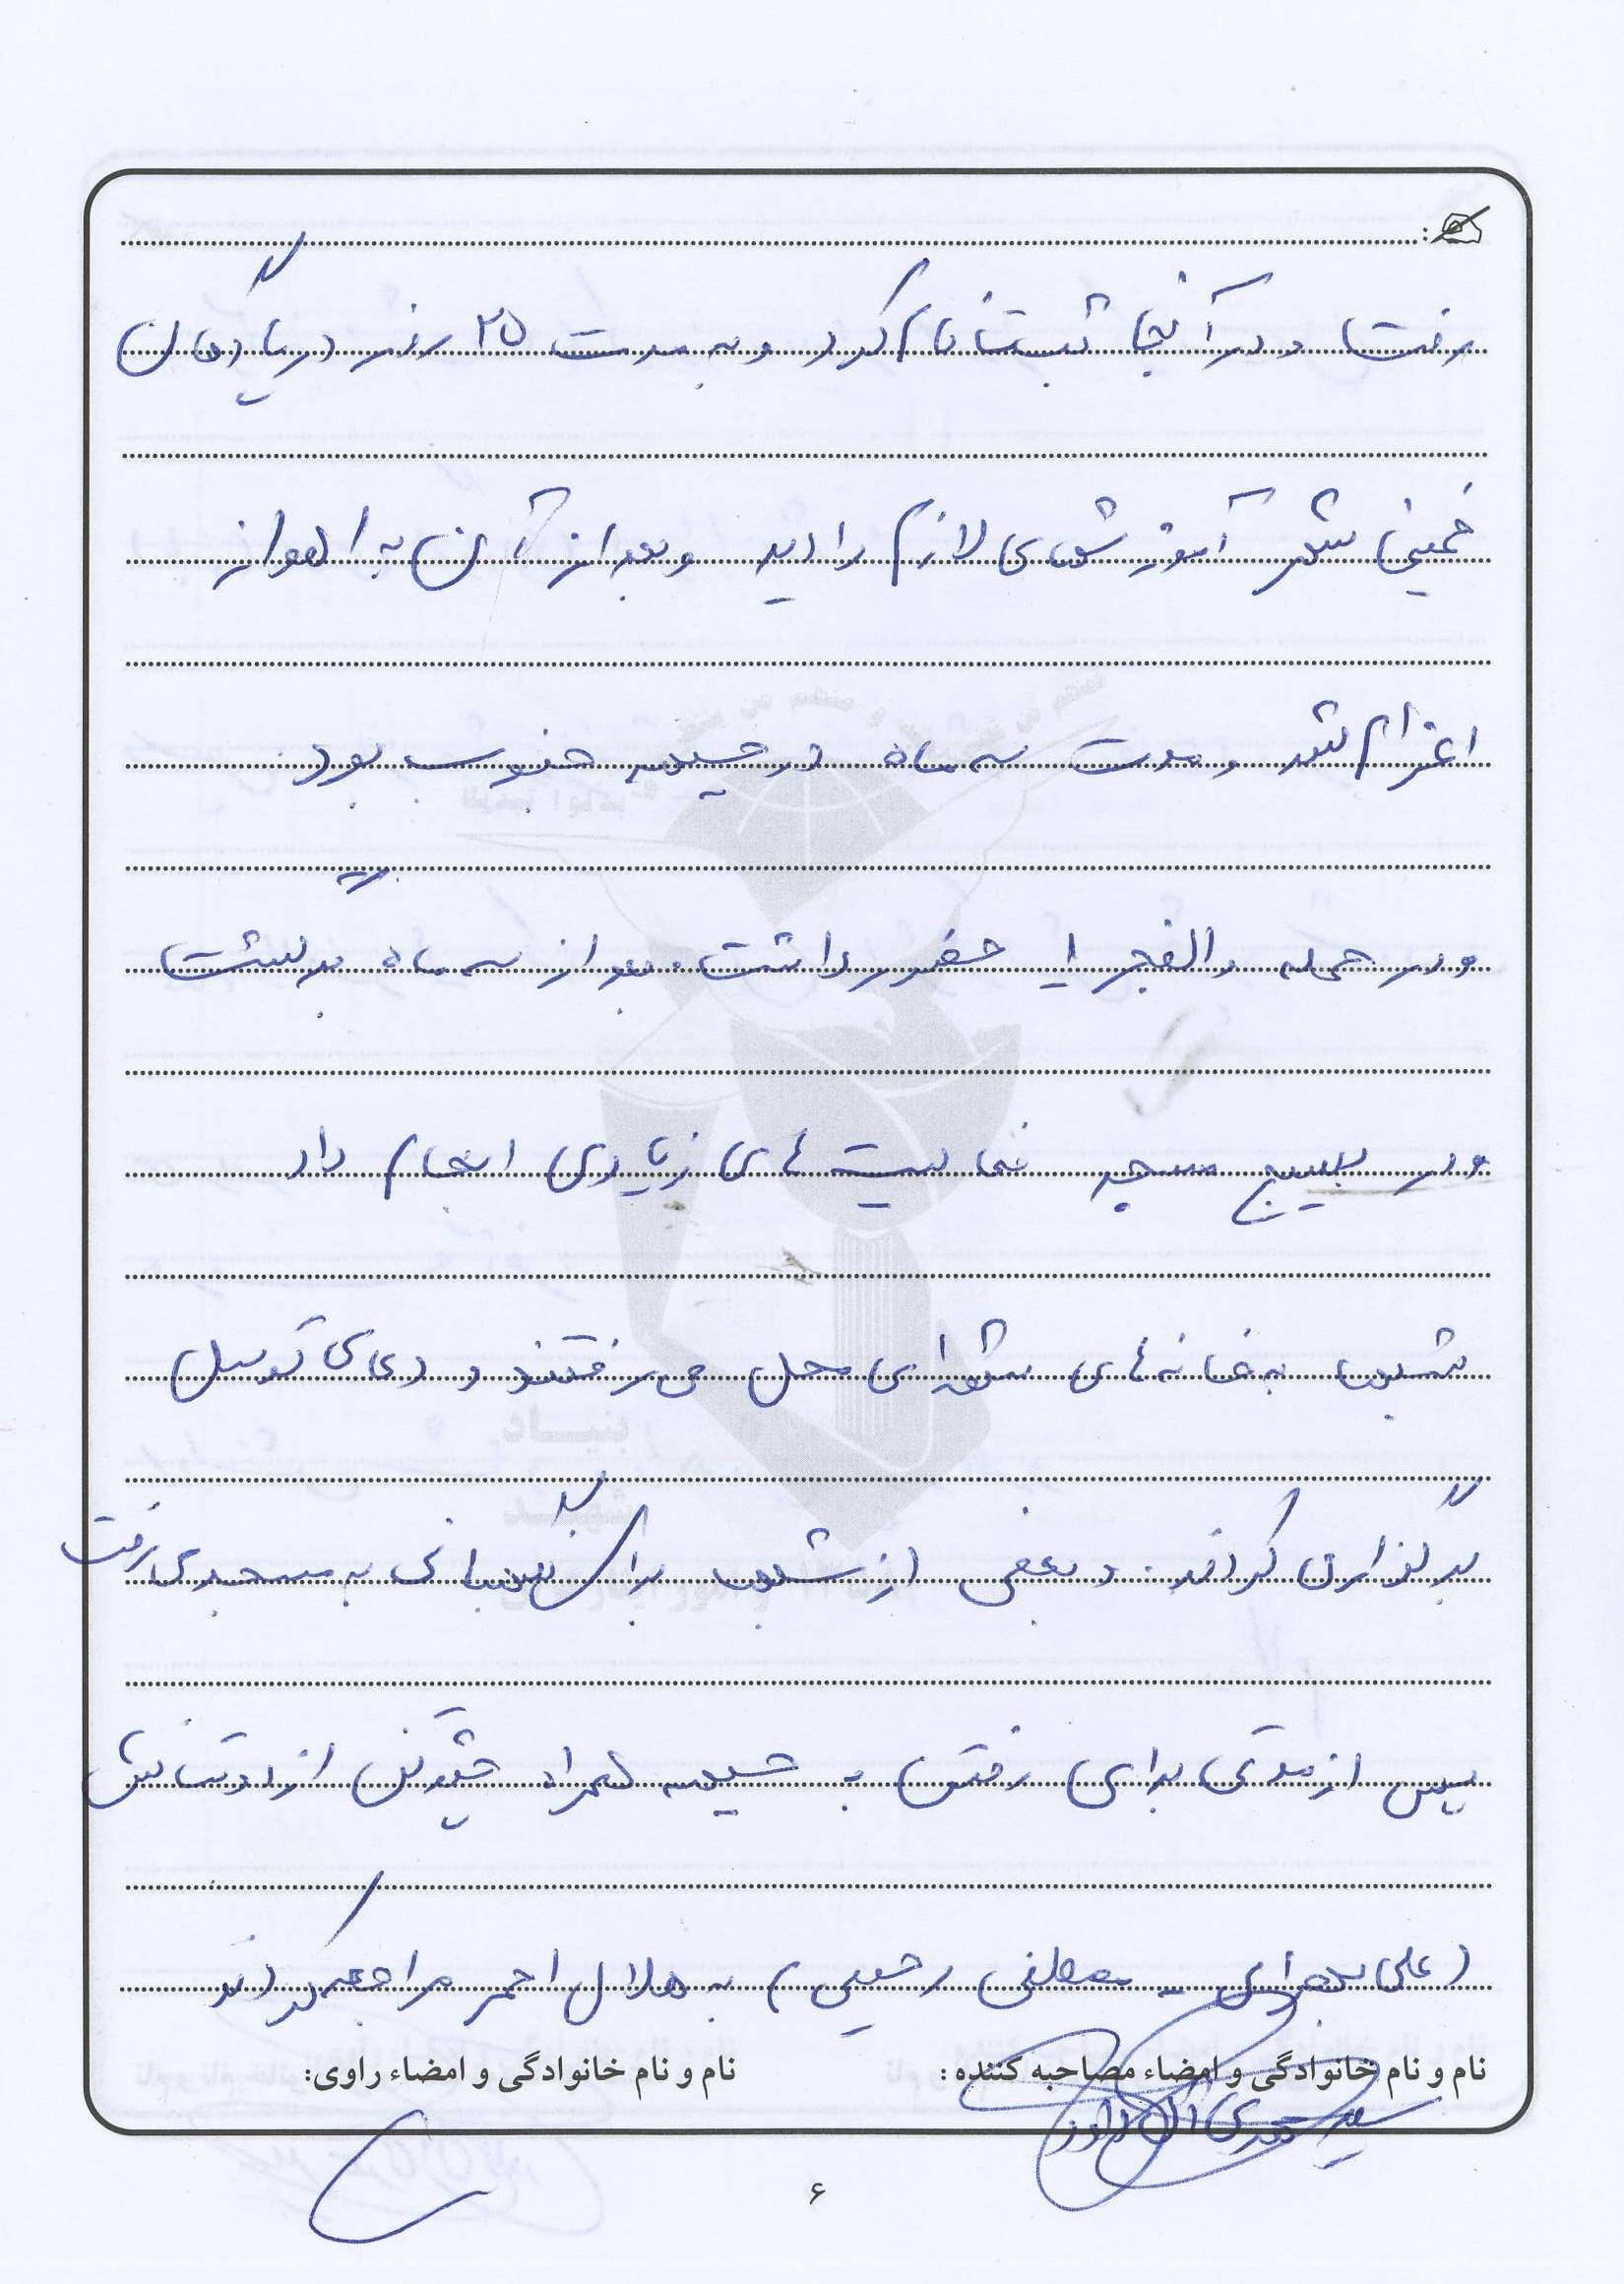 رفت و در آنجا ثبت نام کرد و به مدت ۲۵ روز در پادگان
خمینی شهر آموزشهای لازم را دید و بعد از آن به اهواز
اعزام شد و مدت سه ماه در جبهه جنوب بود
و در حمله والفجر ۱ حضور داشت. بعد از سه ماه برگشت
و در بسیج مسجد فعالیت های زیادی انجام داد
شبها به خانه های شهدای محل می رفتند و دعای توسل
برگزار می کردند. و بعضی از شبها برای نگهبانی به مسجد می رفت
پس از مدتی برای رفتن به جبهه همراه چند تن از دوستانش
(علی - مصطفی رحیمی) به هلال احمر مراجعه کردند
نام و نام خانوادگی و امضاء مصاحبه کننده:
نام و نام خانوادگی و امضاء راوی:
۶